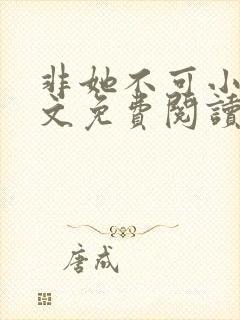 非她不可小
文免費閱讀
唐成